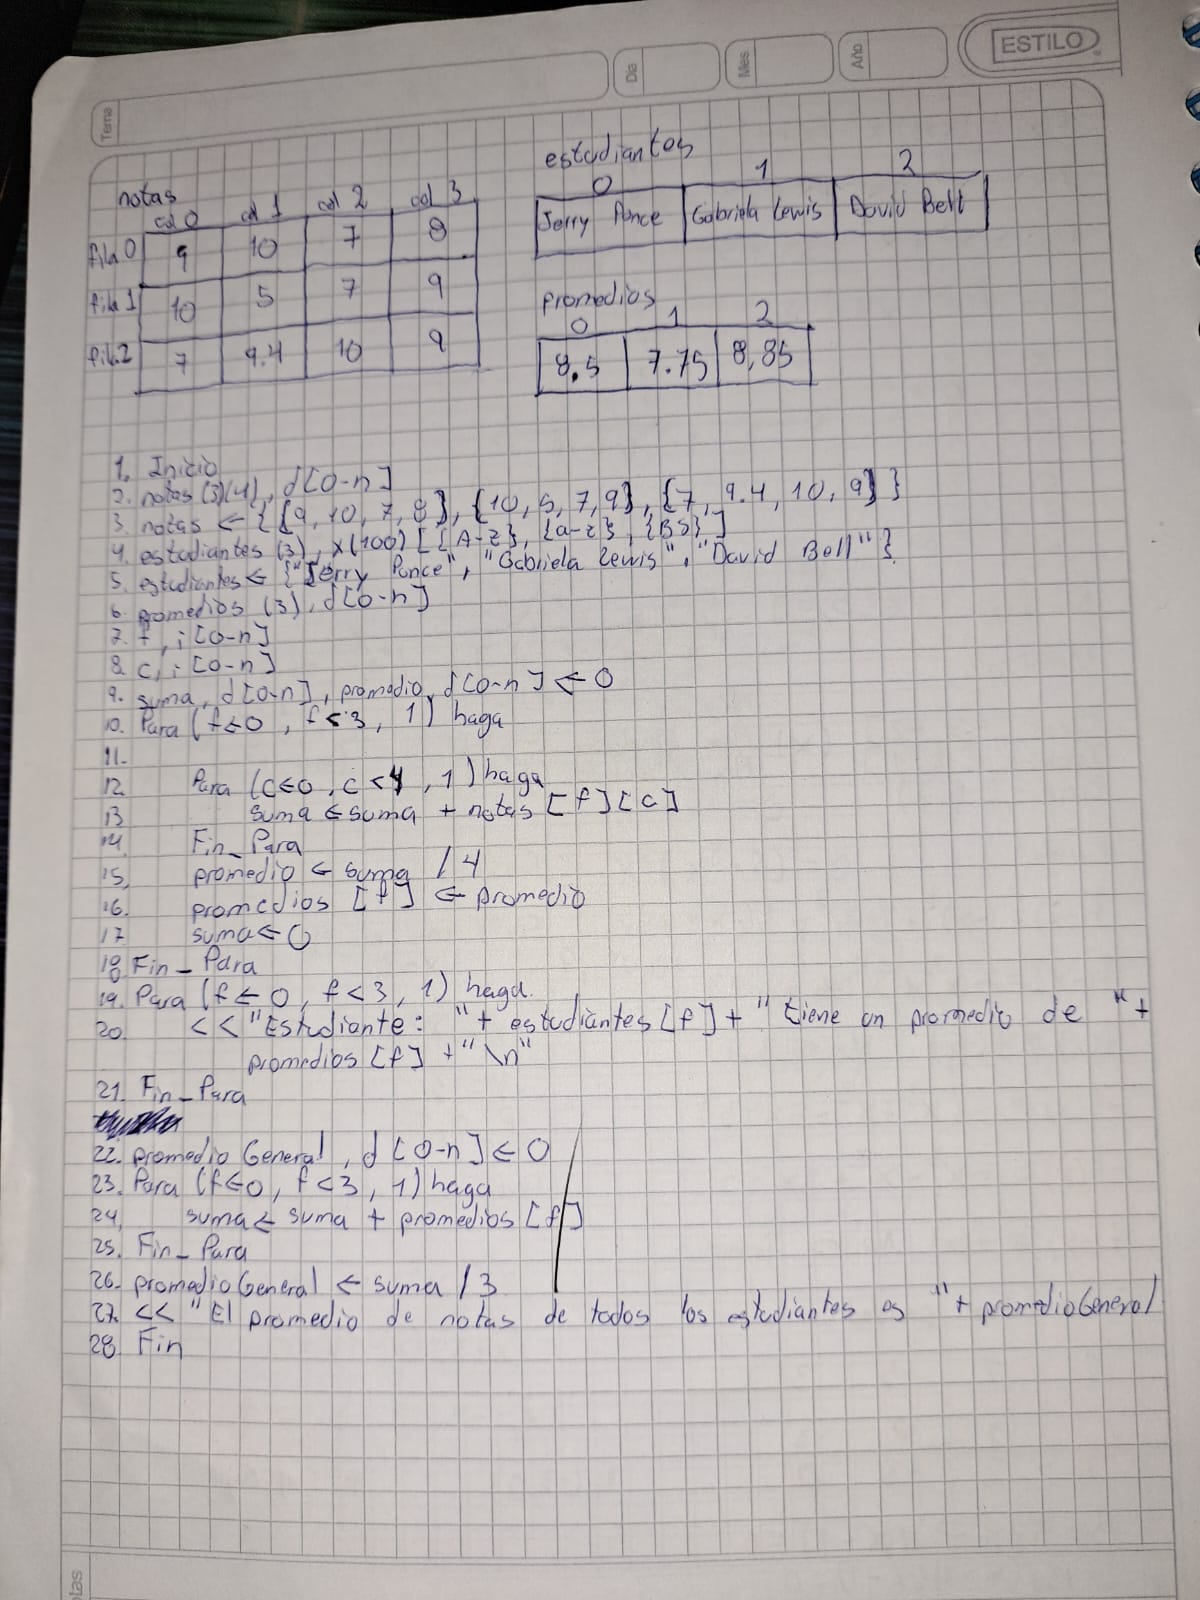 ESTILO
Tema
Día
Mes
Año
notas
col 0 col 1 col 2 col 3
fila 0 9 10 7 8
fila 1 10 5 7 9
fila 2 7 9.4 10 9
estudiantes
0 1 2
Jerry Ponce Gabriela Lewis David Bell
promedios
0 1 2
8.5 7.75 8,85
1. Inicio
2. notas (3)(4), d[0-n]
3. notas ← {{9, 10, 7, 8}, {10, 5, 7, 9}, {7, 9.4, 10, 9}}
4. estudiantes (3), x(100) [{A-Z}, {a-z}, {BS}]
5. estudiantes ← {"Jerry Ponce", "Gabriela Lewis", "David Bell"}
6. promedios (3), d[0-n]
7. f, i[0-n]
8. c, i[0-n]
9. suma, d[0-n], promedio, d[0-n] ← 0
10. Para (f←0, f<3, 1) haga
11.
12. Para (c←0, c<4, 1) haga
13 suma ← suma + notas [f][c]
14. Fin_Para
15. promedio ← suma / 4
16. promedios [f] ← promedio
17 suma ← 0
18. Fin_Para
19. Para (f ← 0, f<3, 1) haga.
20. << "Estudiante: "+ estudiantes[f] + " tiene un promedio de " +
promedios [f] + "\n"
21. Fin_Para
22. promedio General, d[0-n] ← 0
23. Para (f←0, f<3, 1) haga
24. suma ← suma + promedios [f]
25. Fin_Para
26. promedioGeneral ← suma / 3
27. << "El promedio de notas de todos los estudiantes es "+ promedioGeneral
28. Fin